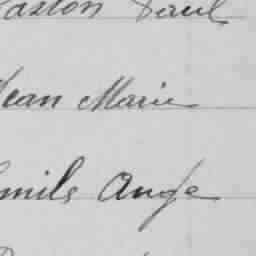 Gaston Paul
Jean Marie
Emile Ange